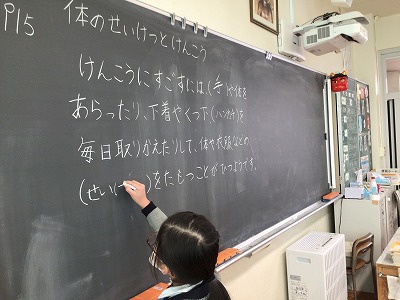 P15 体のせいけつとけんこう
けんこうにすごすには、(手)や体を
あらったり、下着やくつ下(ハンカチ)を
毎日取りかえたりして、体や衣服などの
(せいけ )をたもつことがひつようです。